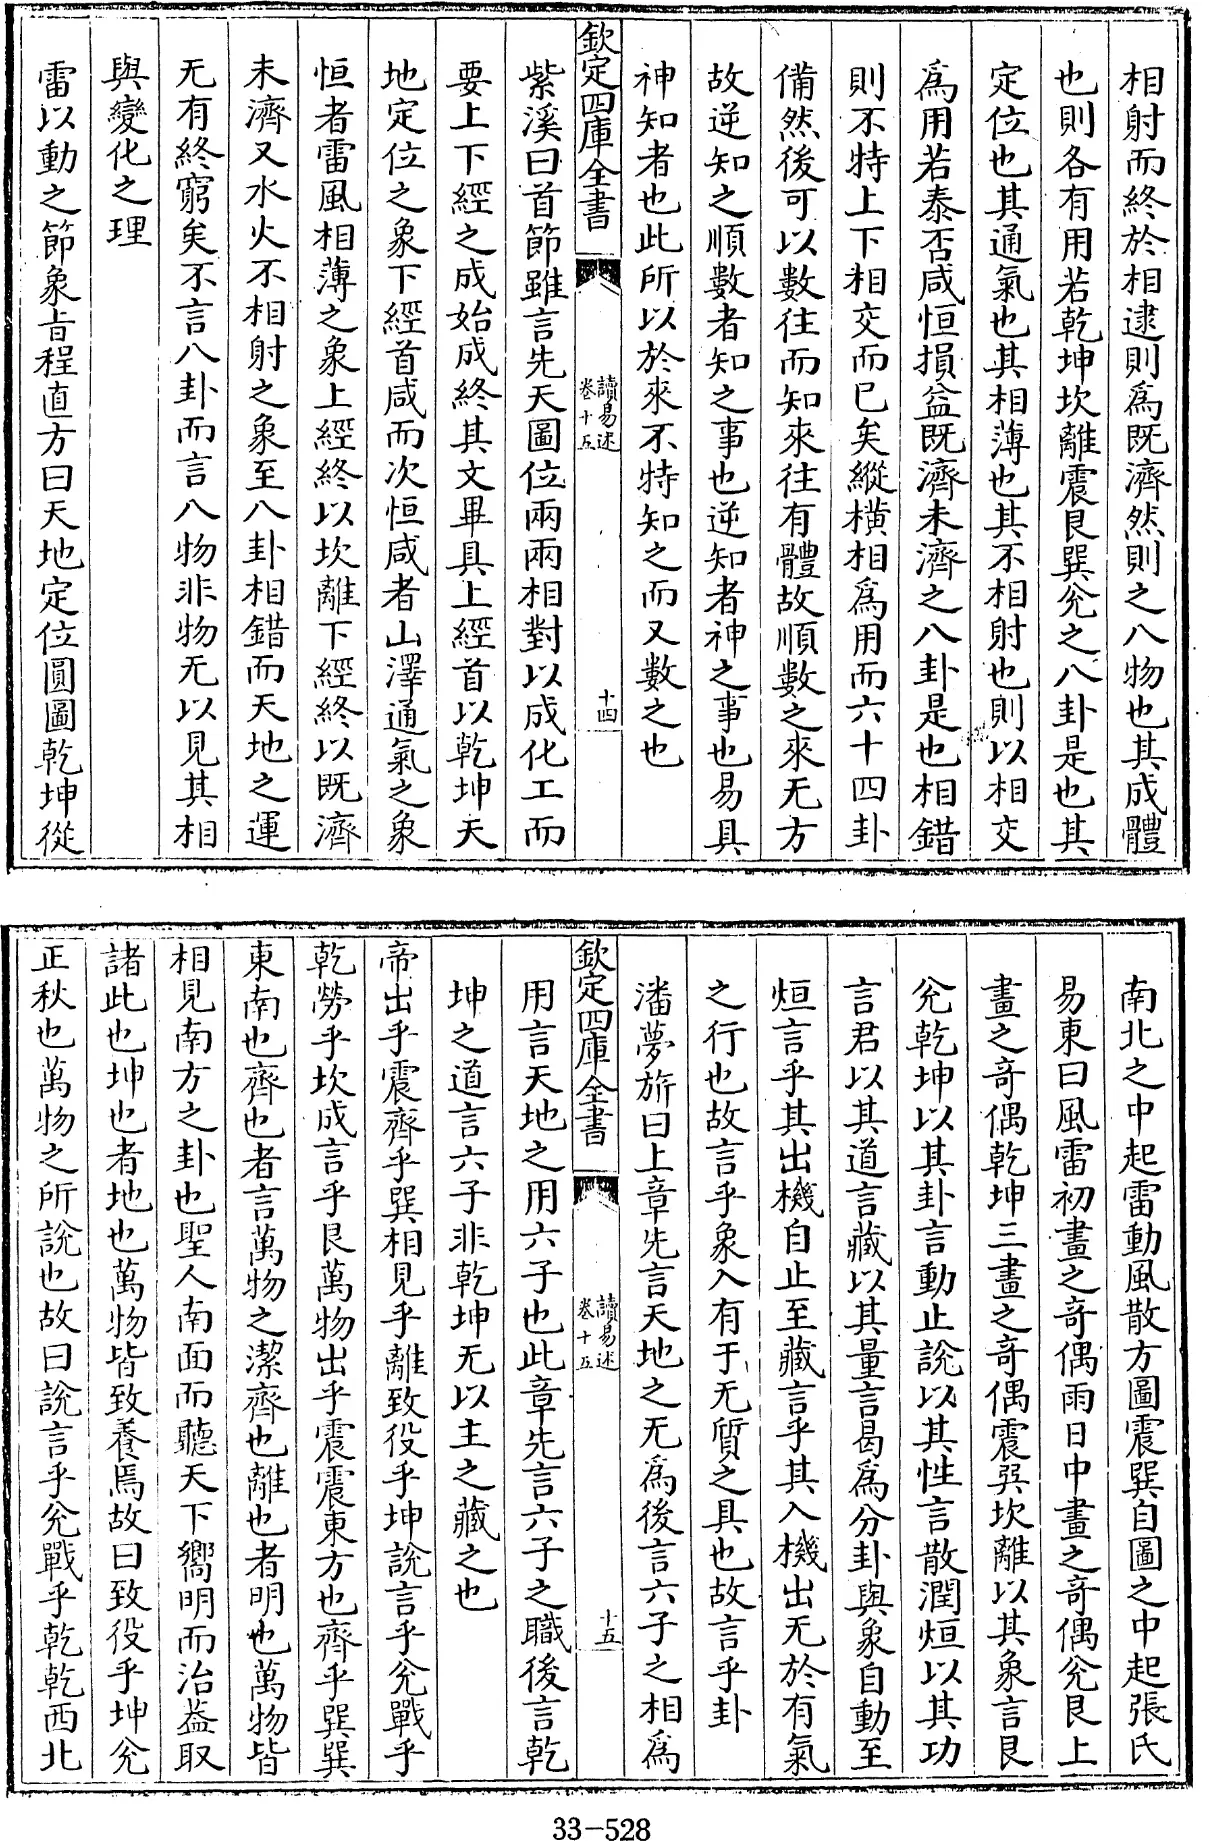 相射而終於相逮則爲既濟然則之八物也其成體
也則各有用若乾坤坎離震艮巽兌之八卦是也其
定位也其通氣也其相薄也其不相射也則以相交
爲用若泰否咸恒損益既濟未濟之八卦是也相錯
則不特上下相交而已矣縱横相爲用而六十四卦
備然後可以數往而知來往有體故順數之來无方
故逆知之順數者知之事也逆知者神之事也易具
神知者也此所以於來不特知之而又數之也
欽定四庫全書
讀易述
卷十五
十四
紫溪曰首節雖言先天圖位兩兩相對以成化工而
要上下經之成始成終其文畢具上經首以乾坤天
地定位之象下經首咸而次恒咸者山澤通氣之象
恒者雷風相薄之象上經終以坎離下經終以既濟
未濟又水火不相射之象至八卦相錯而天地之運
无有終窮矣不言八卦而言八物非物无以見其相
與變化之理
雷以動之節象旨程直方曰天地定位圓圖乾坤從
南北之中起雷動風散方圖震巽自圖之中起張氏
易東曰風雷初畫之奇偶雨日中畫之奇偶兌艮上
畫之奇偶乾坤三畫之奇偶震巽坎離以其象言艮
兌乾坤以其卦言動止說以其性言散潤烜以其功
言君以其道言藏以其量言曷爲分卦與象自動至
烜言乎其出機自止至藏言乎其入機出无於有氣
之行也故言乎象入有于无質之具也故言乎卦
潘夢旂曰上章先言天地之无爲後言六子之相爲
欽定四庫全書
讀易述
卷十五
十五
用言天地之用六子也此章先言六子之職後言乾
坤之道言六子非乾坤无以主之藏之也
帝出乎震齊乎巽相見乎離致役乎坤說言乎兌戰乎
乾勞乎坎成言乎艮萬物出乎震震東方也齊乎巽巽
東南也齊也者言萬物之潔齊也離也者明也萬物皆
相見南方之卦也聖人南面而聽天下嚮明而治蓋取
諸此也坤也者地也萬物皆致養焉故曰致役乎坤兌
正秋也萬物之所說也故曰說言乎兌戰乎乾乾西北
33-528